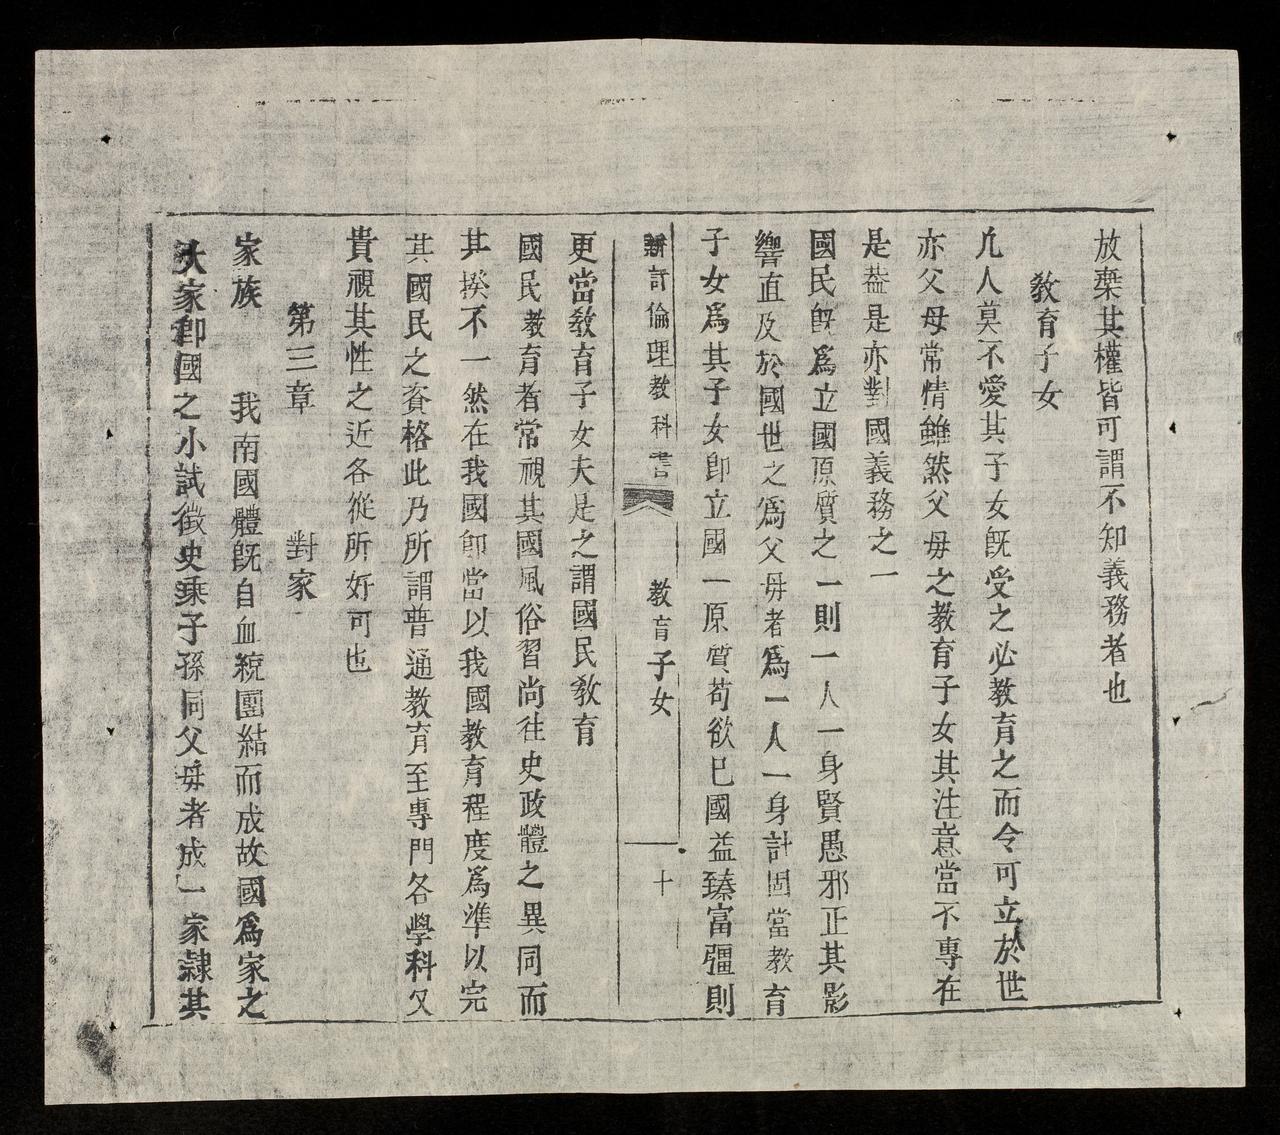 放棄其權皆可謂不知義務者也
教育子女
凡人莫不愛其子女旣受之必教育之而令可立於世
亦父母常情雖然父母之教育子女其注意當不專在
是葢是亦對國義務之一
國民旣爲立國原質之一則一人一身賢愚邪正其影
響直及於國世之爲父母者爲一人一身計固當教育
子女爲其子女卽立國一原質苟欲已國益臻富彊則
新訂倫理教科書 教育子女 十
更當教育子女夫是之謂國民教育
國民教育者常視其國風俗習尚往史政體之異同而
其揆不一然在我國卽當以我國教育程度爲準以完
其國民之資格此乃所謂普通教育至專門各學科又
貴視其性之近各從所好可也
第三章 對家
家族 我南國體旣自血統團結而成故國爲家之
大家卽國之小試徵史乘子孫同父母者成一家隸其